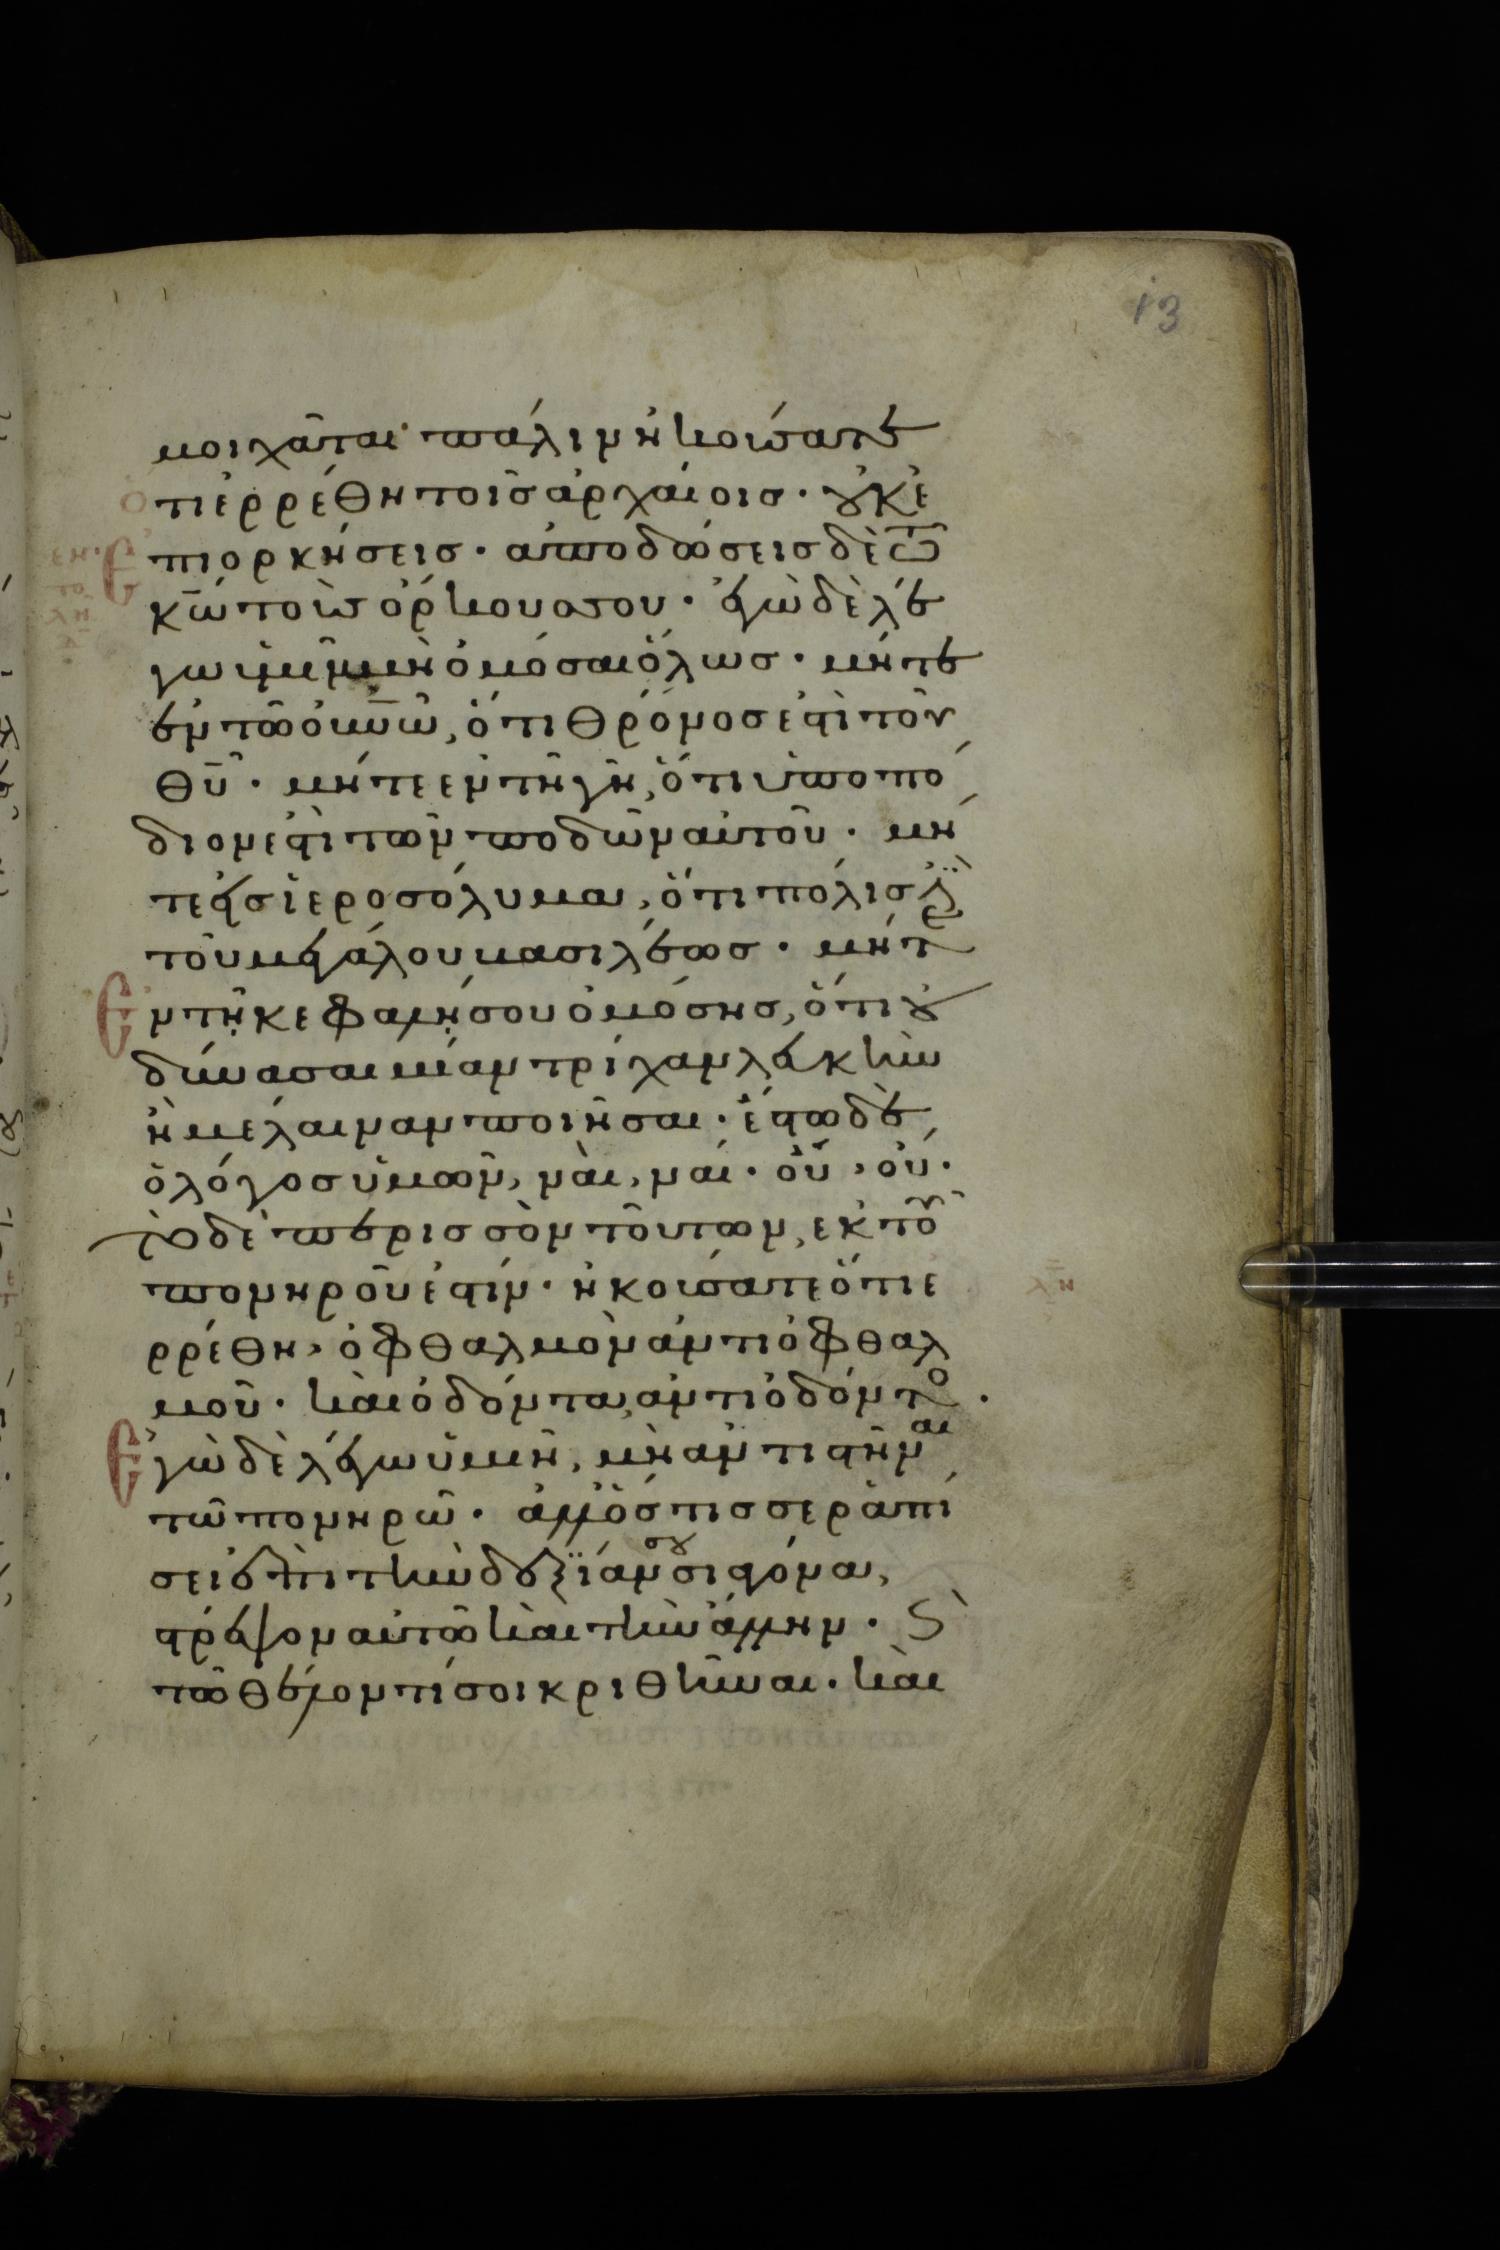 13
μοιχᾶται· πάλιν ἠκούσατε
ὁ
τι ἐρρέθη τοῖς ἀρχαίοις· οὐκ ἐ
πιορκήσεις· ἀποδώσεις δὲ τῶ
κ̅ω̅ τοὺς ὅρκους σου· ἐγὼ δὲ λέ
γω ὑμῖν μὴ ὀμόσαι ὅλως· μήτε
ἐν τῶ οὐ̅ν̅ῶ, ὅτι θρόνος ἐστὶ τοῦ
θ̅υ̅· μήτε ἐν τῆ γῆ, ὅτι ὑποπό
διον ἐστὶ τῶν ποδῶν αὐτοῦ· μή
τε εἰς ἱεροσόλυμα, ὅτι πόλις ἐστὶ
τοῦ μεγάλου βασιλέως· μήτε
ἐν τῆ κεφαλῆ σου ὀμόσης, ὅτι οὐ
δύνασαι μίαν τρίχαν λευκὴν
ἢ μέλαιναν ποιῆσαι· ἔστω δὲ
ὁ λόγος ὑμῶν, ναὶ, ναί· οὔ, οὔ·
τὸ δὲ περισσὸν τούτων, ἐκ τοῦ
πονηροῦ ἐστίν· ἠκούσατε ὅτι ἐ
λη
ρρέθη, ὀφθαλμὸν ἀντὶ ὀφθαλ
μοῦ· καὶ ὀδόντα, ἀντὶ ὀδόντο·
Ἐγὼ δὲ λέγω ὑμῖν, μὴ ἀντιστῆναι
τῶ πονηρῶ· ἀλλ' ὅστις σε ῥαπί
σει ἐπὶ τὴν δεξιάν σου σιαγόνα,
στρέψον αὐτῶ καὶ τὴν ἄλλην· Ϛ
τῶ θέλοντί σοι κριθῆναι· καὶ